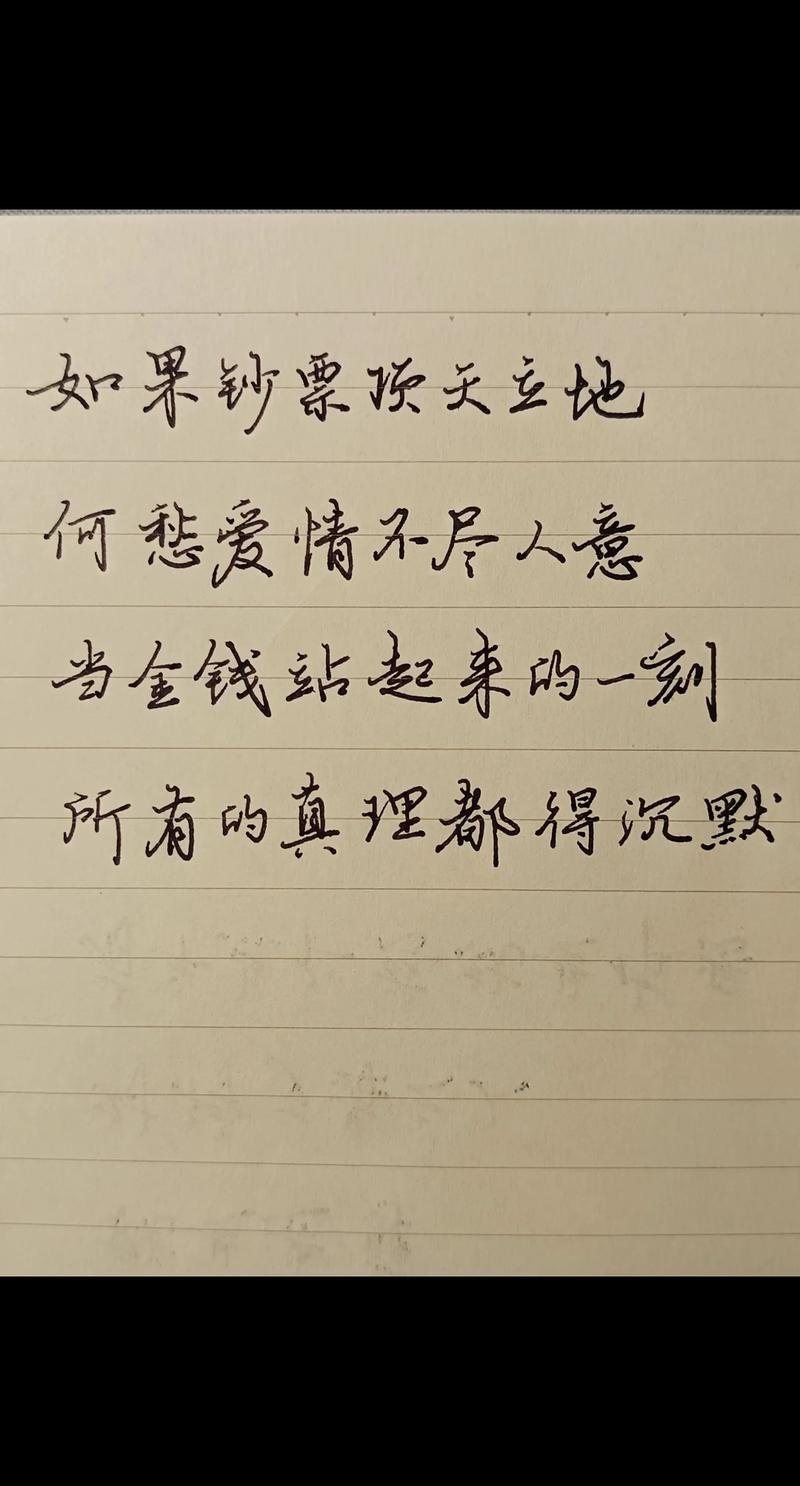 如果钞票顶天立地
何愁爱情不尽人意
当金钱站起来的一刻
所有的真理都得沉默